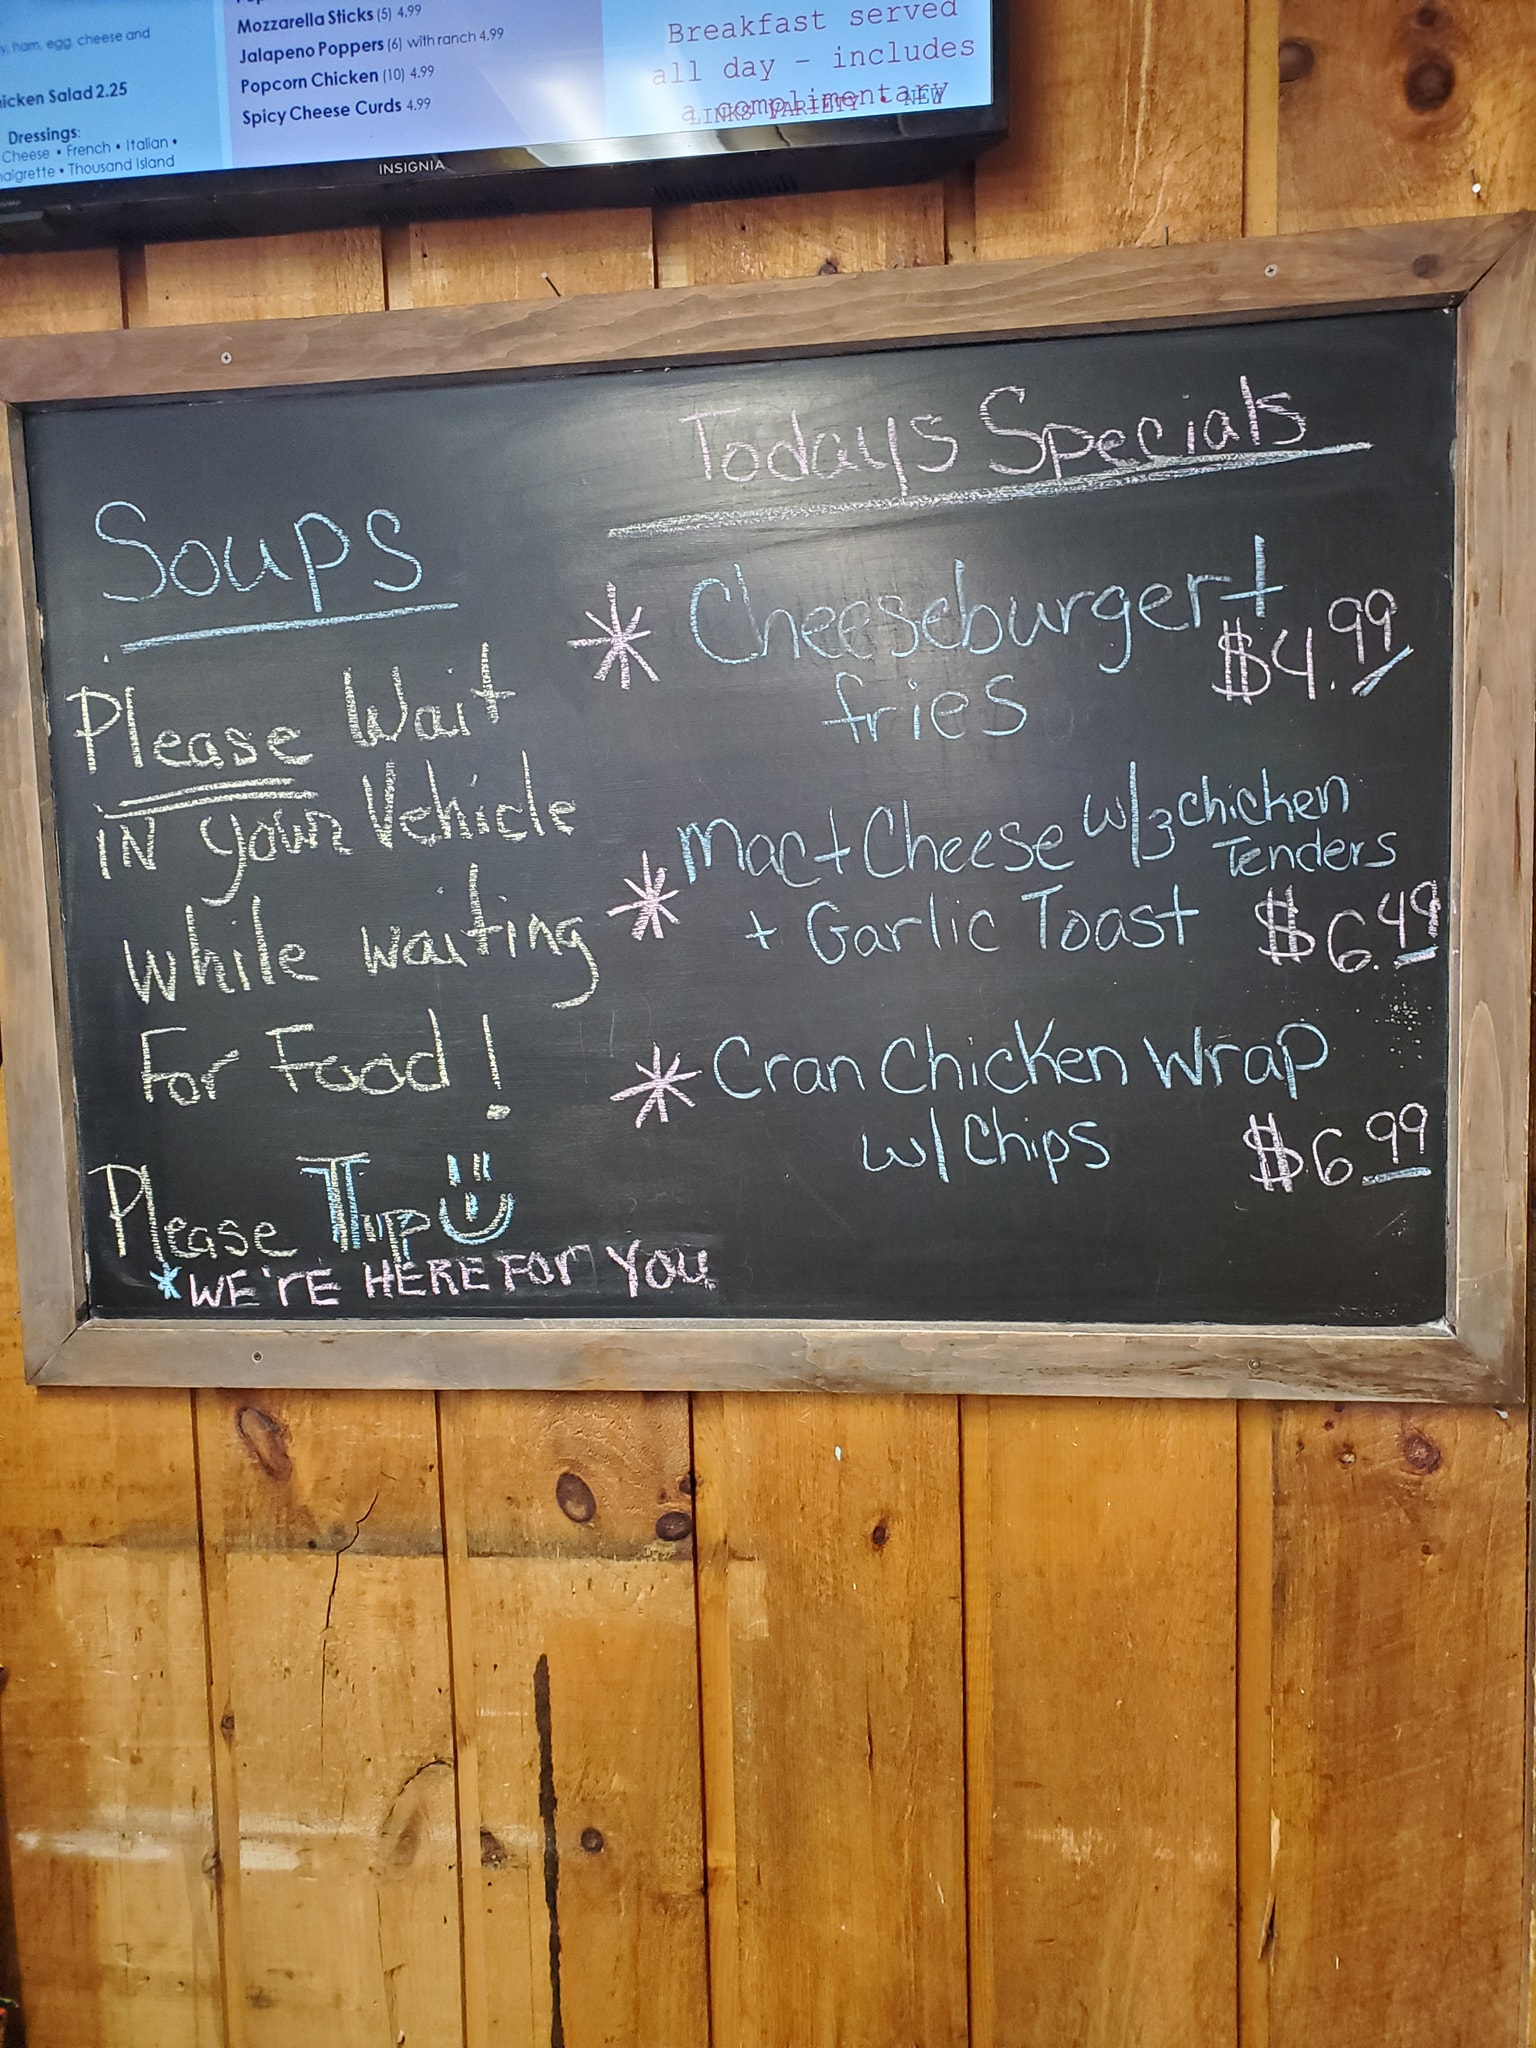 ham, egg, cheese and
Salad 2.25
Dressings:
Cheese • French • Italian •
• Thousand Island
Mozzarella Sticks (5) 4.99
Jalapeno Poppers (6) with ranch 4.99
Popcorn Chicken (10) 4.99
Spicy Cheese Curds 4.99
Breakfast served
all day - includes
a complimentary
LINKS VARIETY • NEW
INSIGNIA
Soups
Please Wait
in your Vehicle
while waiting
For Food!
Please Tip
*WE'rE HERE For You
Todays Specials
* Cheeseburger +
fries $4.99
* Mac + Cheese w/3 chicken
Tenders
+ Garlic Toast $6.49
* Cran Chicken Wrap
w/ Chips $6.99